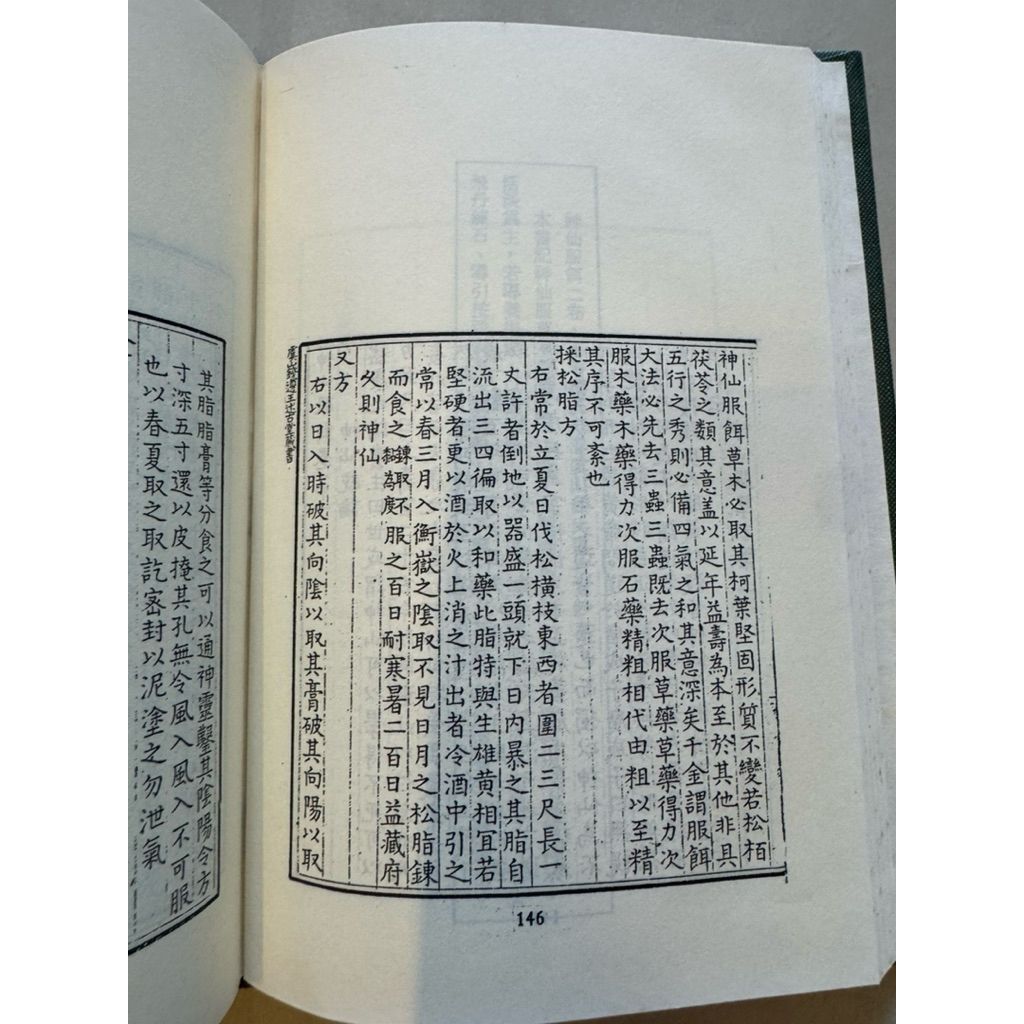 神仙服餌草木必取其柯葉堅固形質不變若松栢
茯苓之類其意盖以延年益壽為本至於其他非具
五行之秀則必備四氣之和其意深矣千金謂服餌
大法必先去三蟲三蟲既去次服草藥草藥得力次
服木藥木藥得力次服石藥精粗相代由粗以至精
其序不可紊也
採松脂方
右常於立夏日伐松橫枝東西者圍二三尺長一
丈許者倒地以器盛一頭就下日内暴之其脂自
流出三四徧取以和藥此脂特與生雄黄相冝若
堅硬者更以酒於火上消之汁出者冷酒中引之
常以春三月入衡嶽之陰取不見日月之松脂鍊
而食之鍊不服之百日耐寒暑二百日益藏府
久則神仙
又方
右以日入時破其向陰以取其膏破其向陽以取
虞山錢遵王述古堂藏書
146
其脂脂膏等分食之可以通神靈鑿其陰陽令方
寸深五寸還以皮掩其孔無令風入風入不可服
也以春夏取之取訖宻封以泥塗之勿泄氣